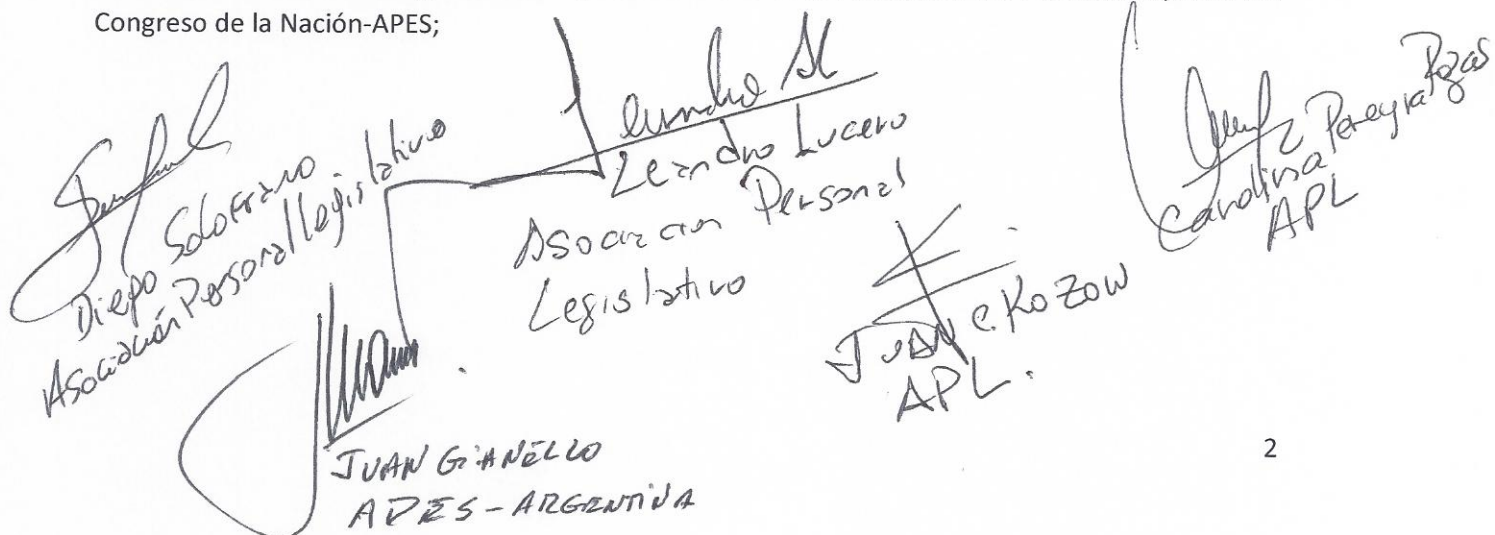 Congreso de la Nación-APES;
Diego Solofrano
Asociación Personal Legislativo
Leandro Lucero
Asociacion Personal
Legislativo
Carolina Pereyra Rozas
APL
JUAN C. KOZOW
APL.
JUAN GIANELLO
APES-ARGENTINA
2